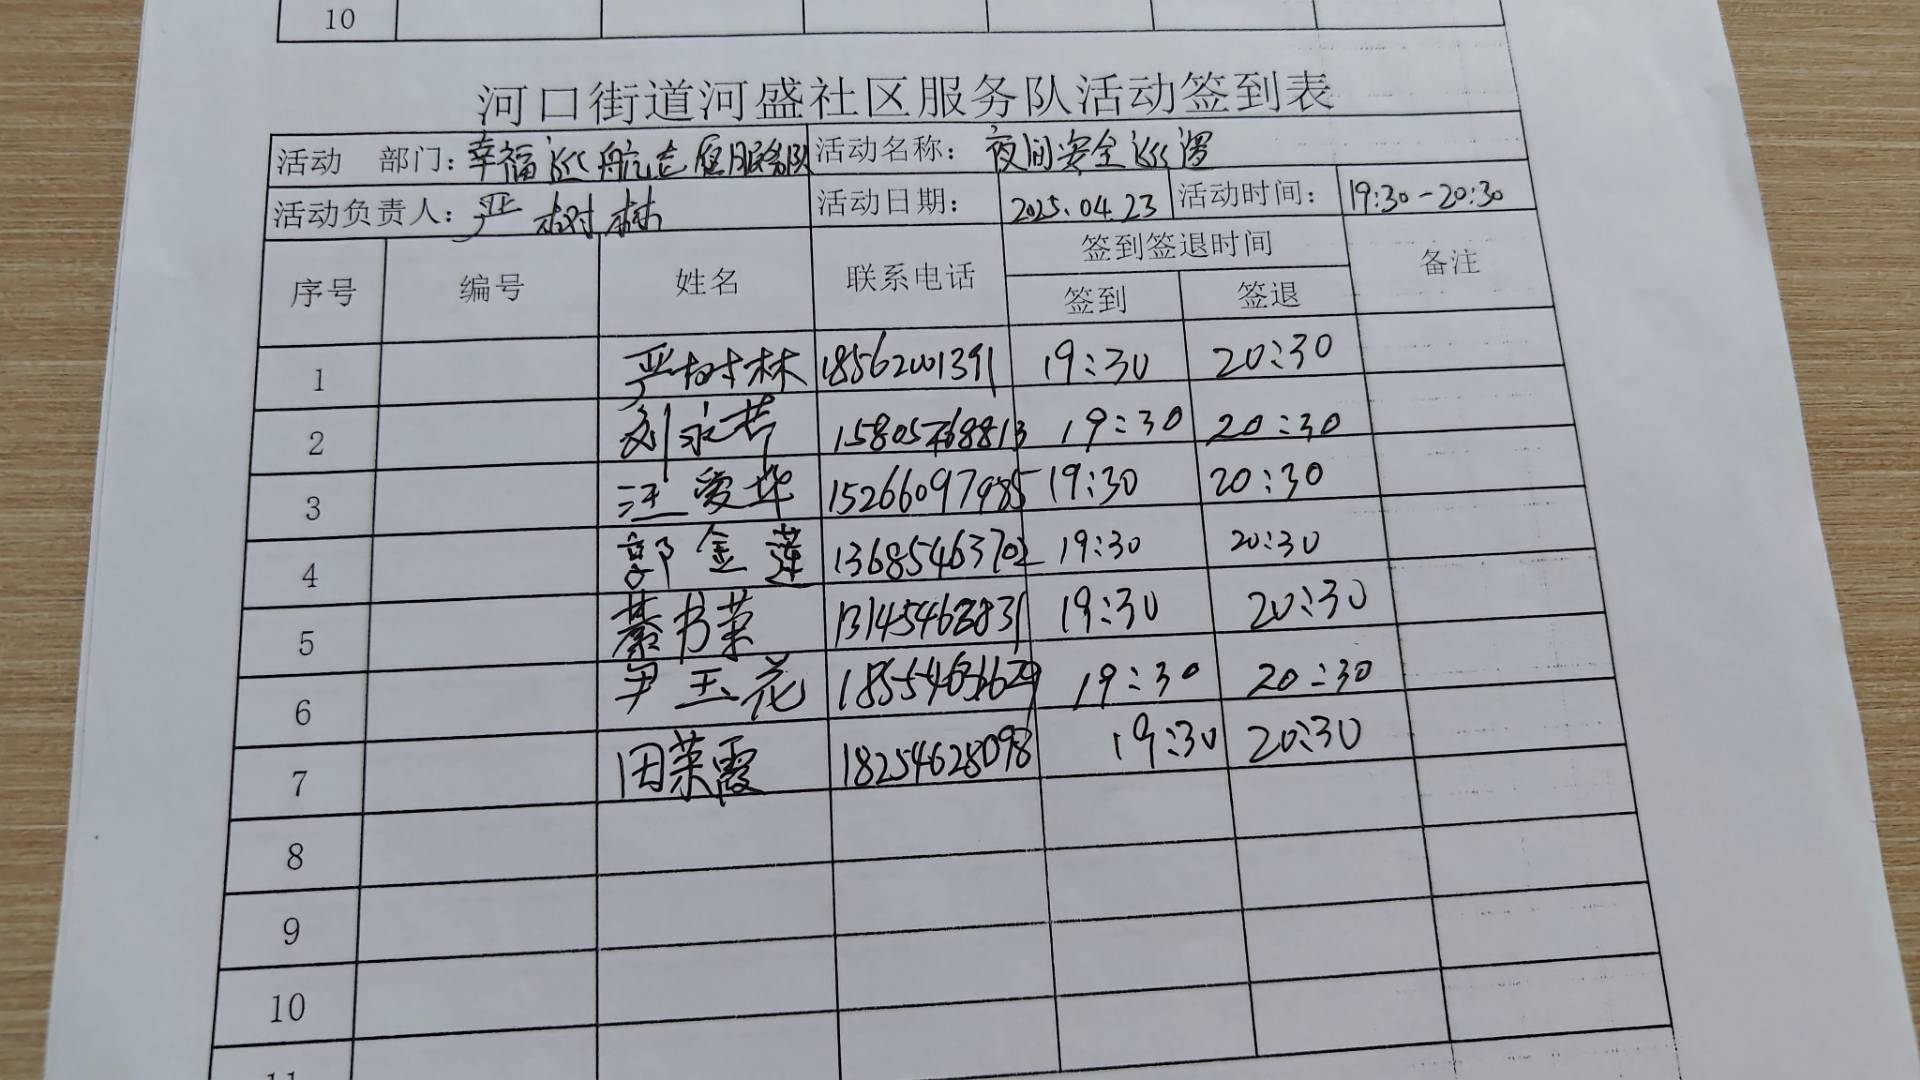 10
河口街道河盛社区服务队活动签到表
活动 部门：幸福巡航志愿服务队 活动名称： 夜间安全巡逻
活动负责人：严树林 活动日期： 2025.04.23 活动时间： 19:30-20:30
序号 编号 姓名 联系电话 签到签退时间 备注
签到 签退
1 严树林 18562001391 19:30 20:30
2 刘永芳 19:30 20:30
3 汪爱华 15266097985 19:30 20:30
4 郭金莲 13685463702 19:30 20:30
5 綦书荣 19:30 20:30
6 尹玉花 19:30 20:30
7 田荣霞 18254628098 19:30 20:30
8
9
10
11